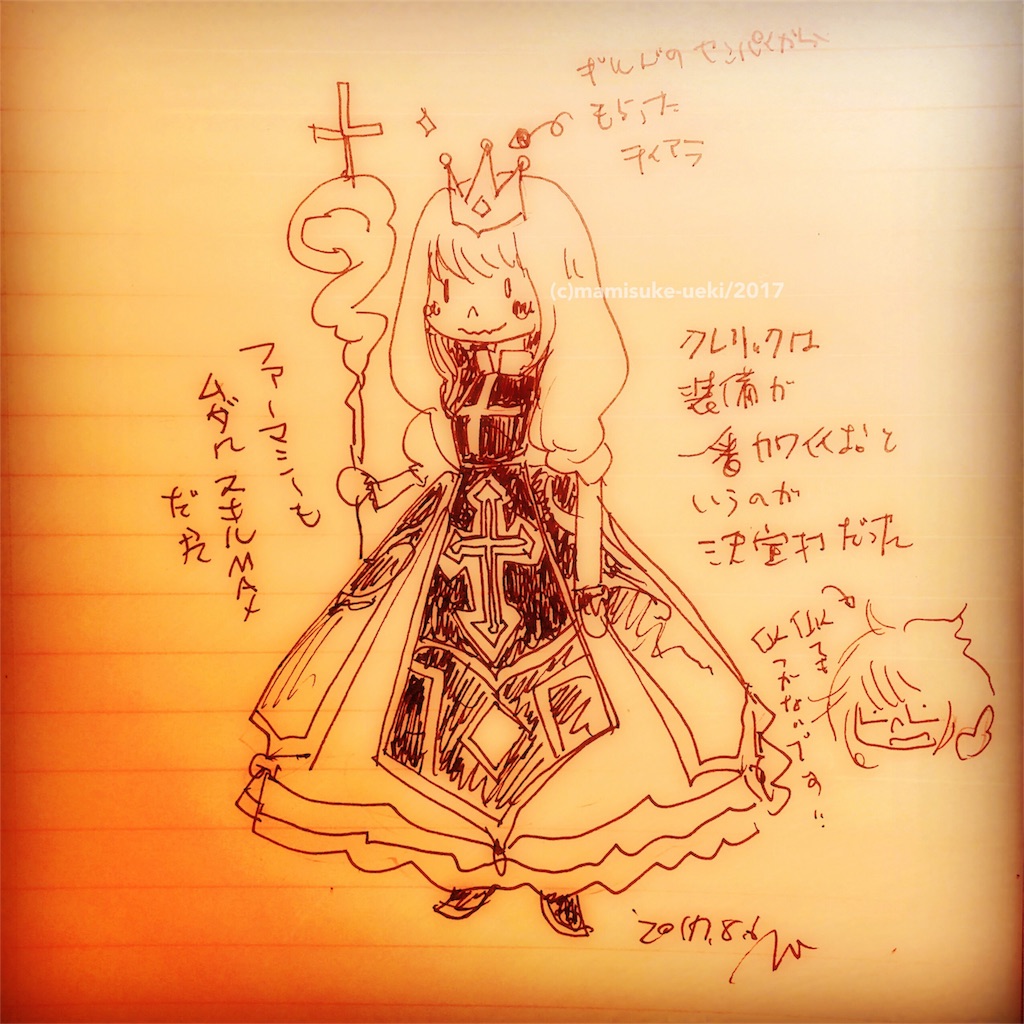 ぎるどのセンパイから
もらった
ティアラ
(c)mamisuke-ueki/2017
クレリックは
装備が
一番カワイイなぁと
いうのが
決定打だった
ファーマシーも
ムダにスキルMAX
だった
'2017.8.6